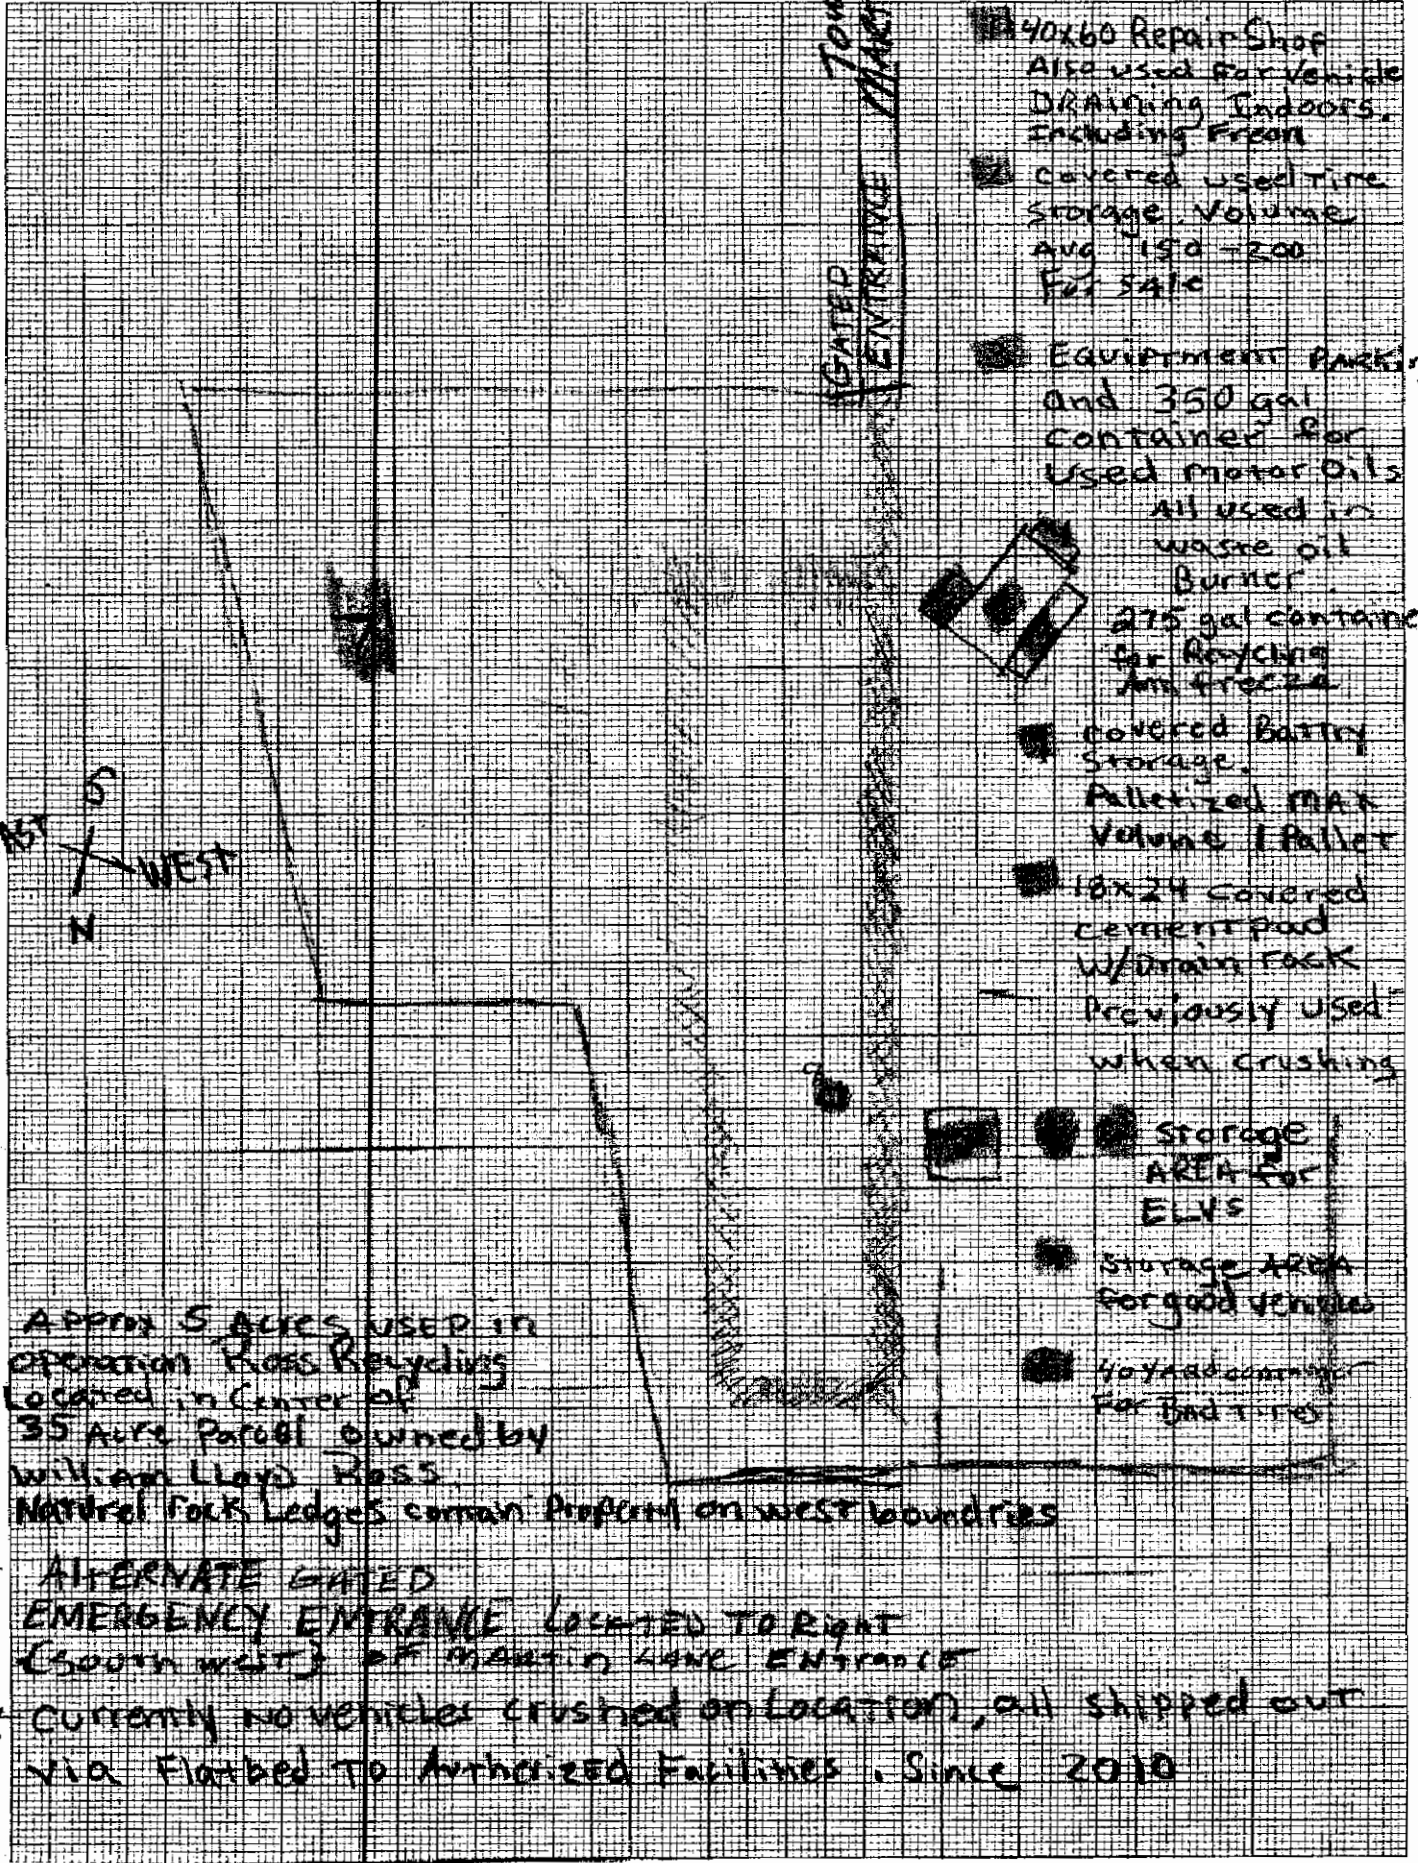 Tow
MART
GATED
ENTRANCE
40x60 Repair Shop
Also used For Vehicle
DRAining Indoors.
Including Freon
covered used Tire
Storage. Volume
Avg 150 - 200
For sale
Equiptment PARKin
and 350 gal
container for
used motor Oils
All used in
waste oil
Burner.
275 gal containe
for Recycling
Anti freeze
covered Battry
Storage.
Palletized MAX
Volume 1 Pallet
18x24 covered
cement pad
W/Drain rock
Previously used
when crushing
Storage
AREA for
ELVS
Storage AREA
for good vehicles
40 YARD container
For BAD Tires
S
AST
WEST
N
Approx 5 Acres USED in
operation Ross Recycling
Located in Center of
35 Acre Parcel owned by
William LLoyd Ross
Naturel rock Ledges contain Property on west boundries
AlTERNATE GATED
EMERGENCY ENTRANCE LOCATED TO Right
(South west) of MARTIN LANE ENTrance
Currently NO vehicles crushed on Location, all shipped out
via Flatbed To Autherized Facilities. Since 2010